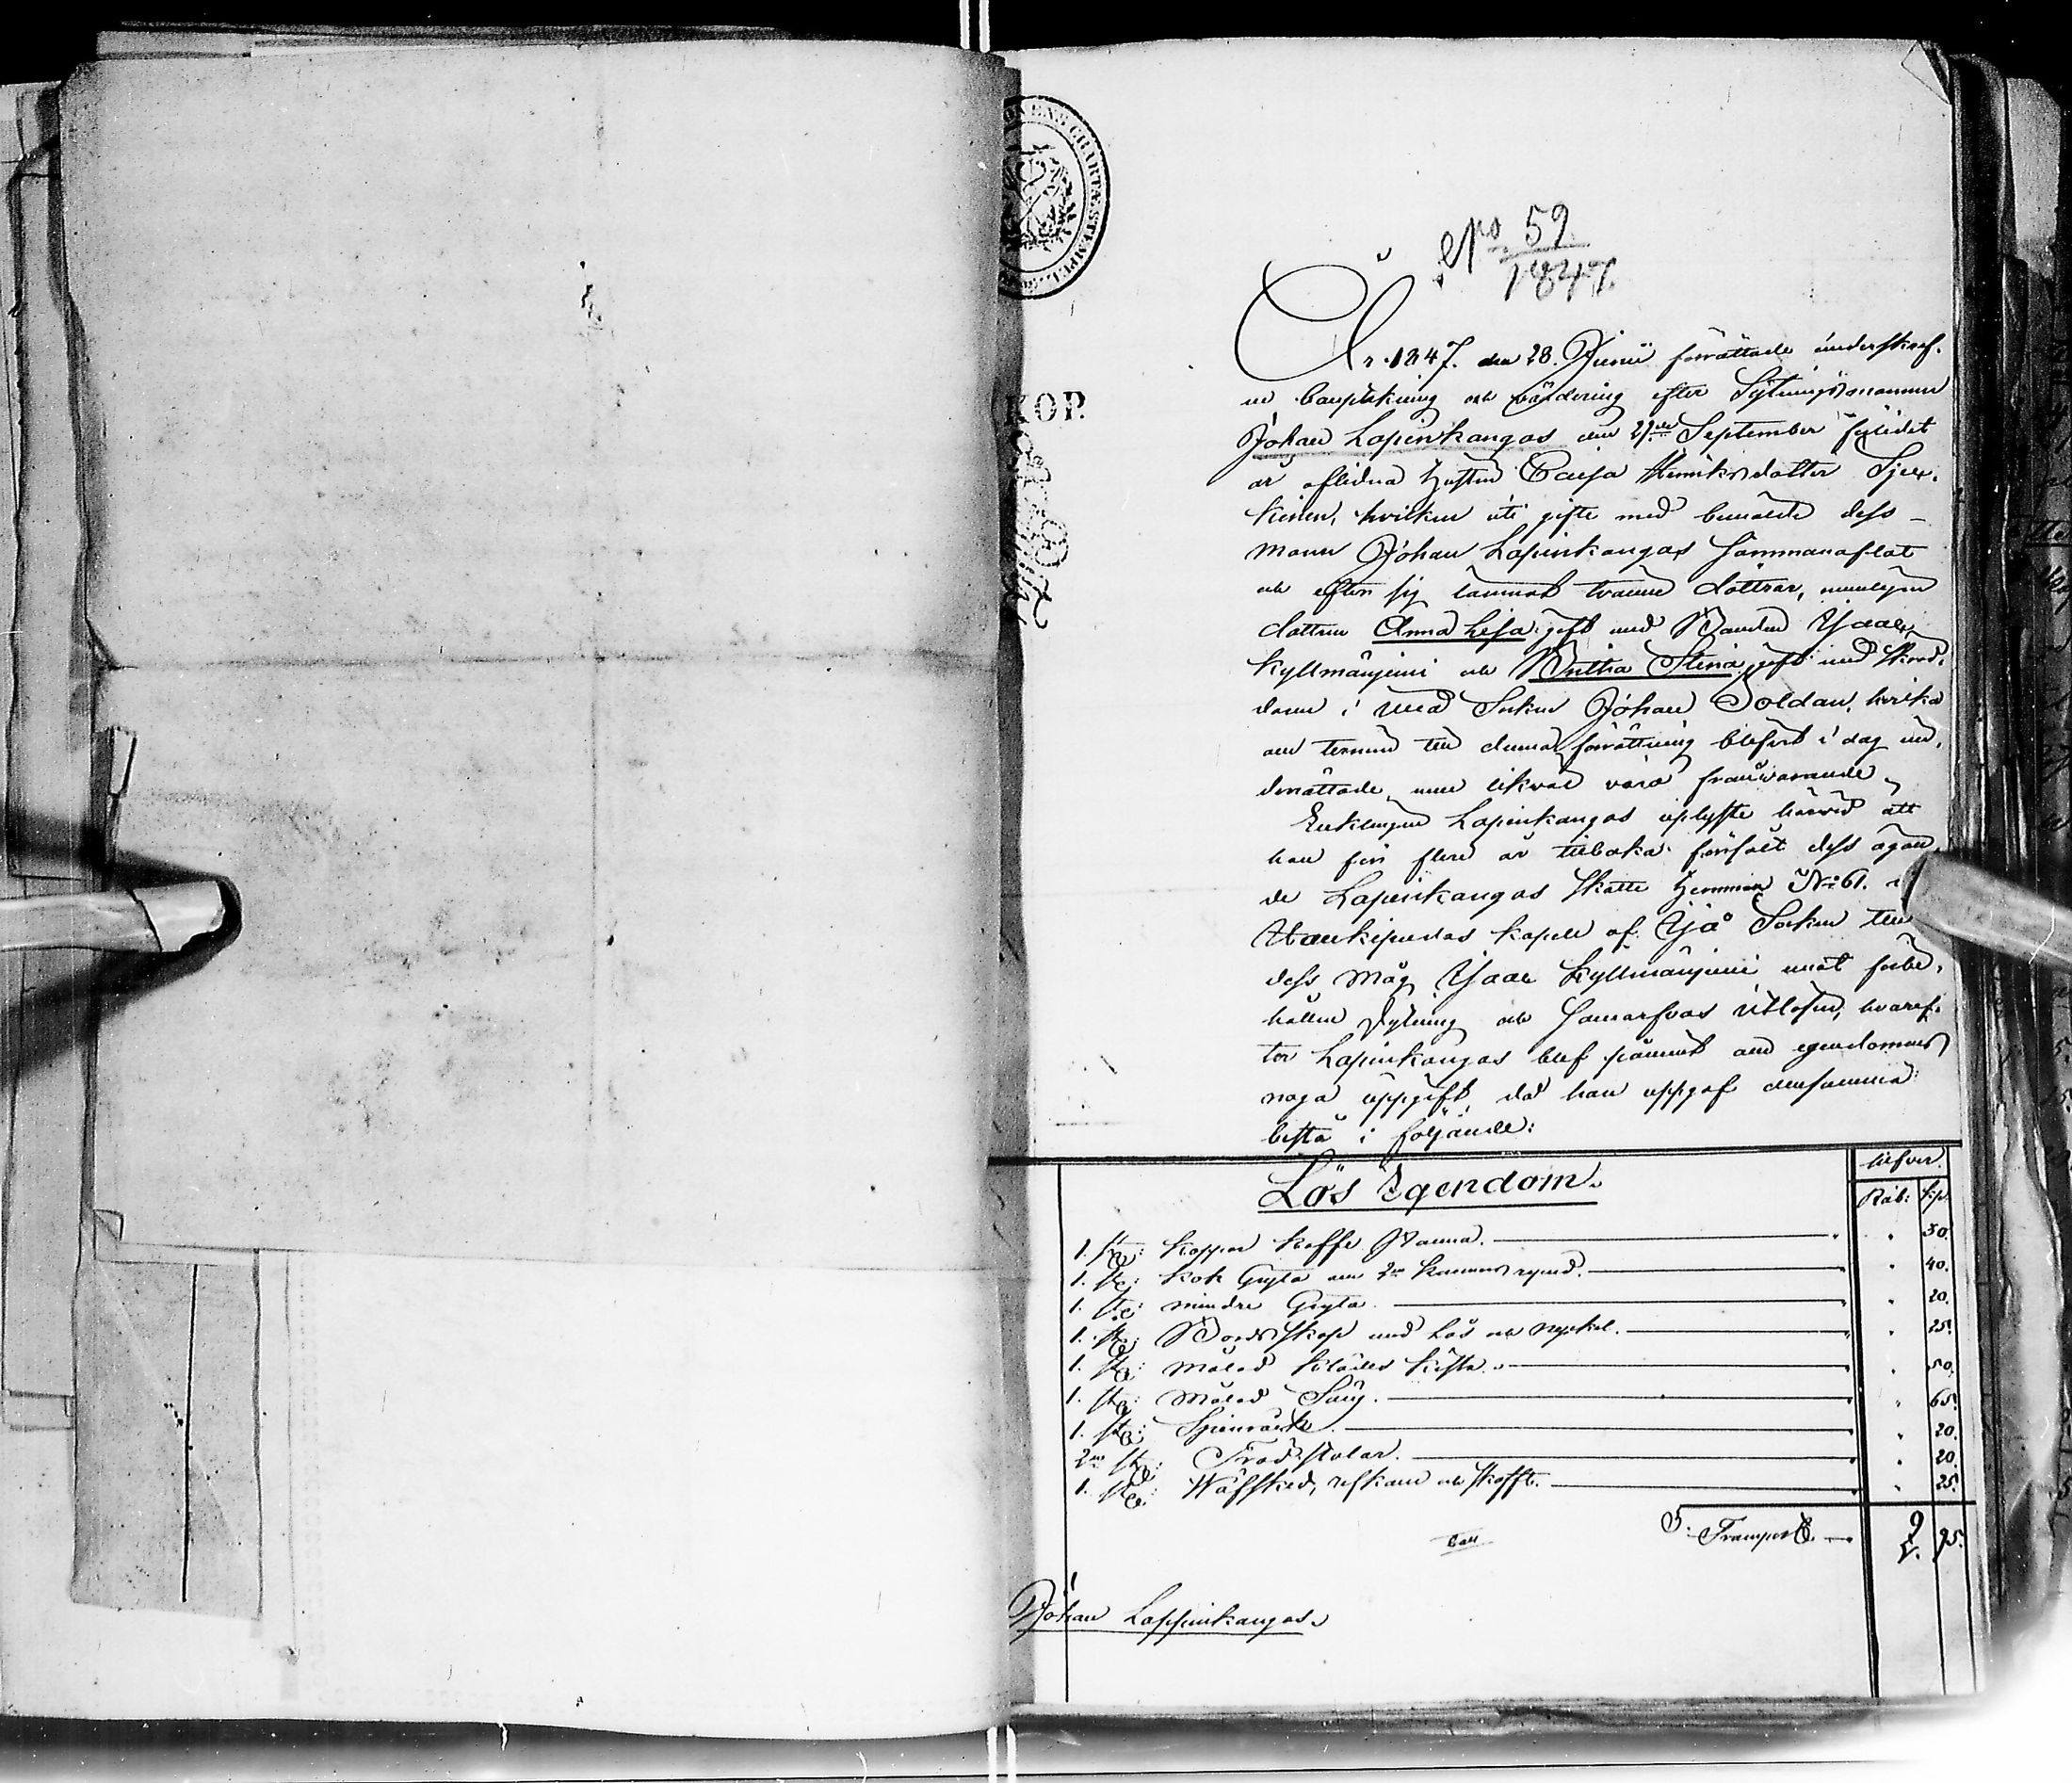 No 59
1847.
KOP.
År 1847. den 28. Junii förrättade underskref-
ne bouptekning och värdering efter Sytningsmannen
Johan Lapinkangas den 29de September sistledet
år aflidna hustru Caisa Henriksdotter Tjer-
kinen, hvilken uti gifte med bemälde dess
mann Johan Lapinkangas sammanaflat
och efter sig lämnat tvänne döttrar, nemligen
dottren Anna Lisa gift med Bonden Isaac
Kyllmänjemi och Britha Stina gift med Skred-
daren i Uleå Socken Johan Toldan, hvilka
om termin till denna förrättning blefvit i dag un-
derrättade, men likväl voro frånvarande,
Enklingen Lapinkangas uplyste härvid att
han för flere år tillbaka försålt dess ägan-
de Lapinkangas Skatte hemman No 61. i
Haukipudas kapell af Ijå Socken till
dess Måg Isaac Kyllmänjemi mot förbe-
hållen sytning och Samarfvas utlösen, hvaref-
ter Lapinkangas blef påmint om egendomens
noga uppgift, då han uppgaf densamma
bestå i följande:
Lös Egendom.
silfver.
Rub: Kop
1. st: koppar kaffe Panna. 50.
1. st: kok Gryta om 2ne kannors rymd. 40.
1. st: mindre Gryta. 20.
1. st: Bordsskåp med Lås och nyckel. 25.
1. st: målad klädes kista. 50.
1. st: målad Säng. 65.
1. st: Spinråck. 20.
2ne st: Trädstolar. 20.
1. st: Wäfsked, och skofft. 25.
S. Transport. 2. 95.
Johan Lappinkangas.